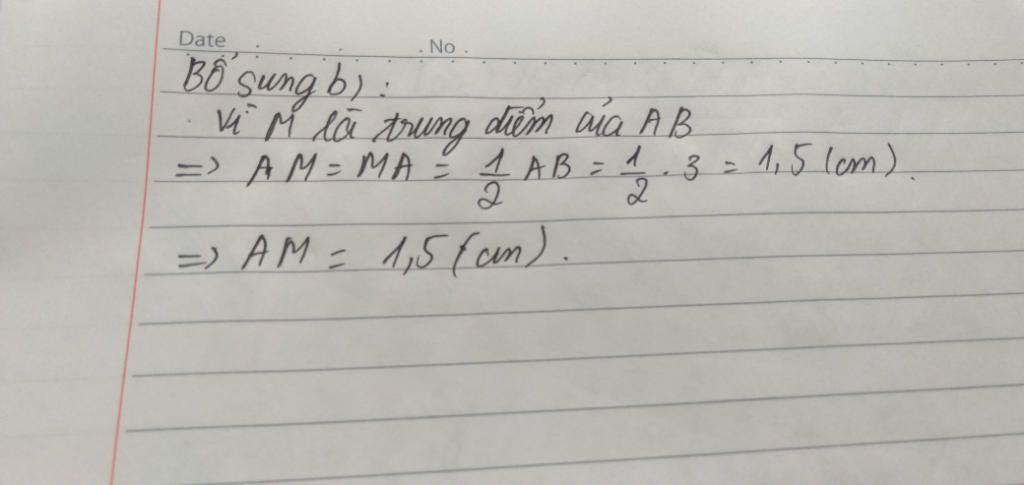 Date . . . No .
Bổ sung b) :
Vì M là trung điểm của AB
=> AM = MA = 1/2 AB = 1/2 . 3 = 1,5 (cm).
=> AM = 1,5 (cm).